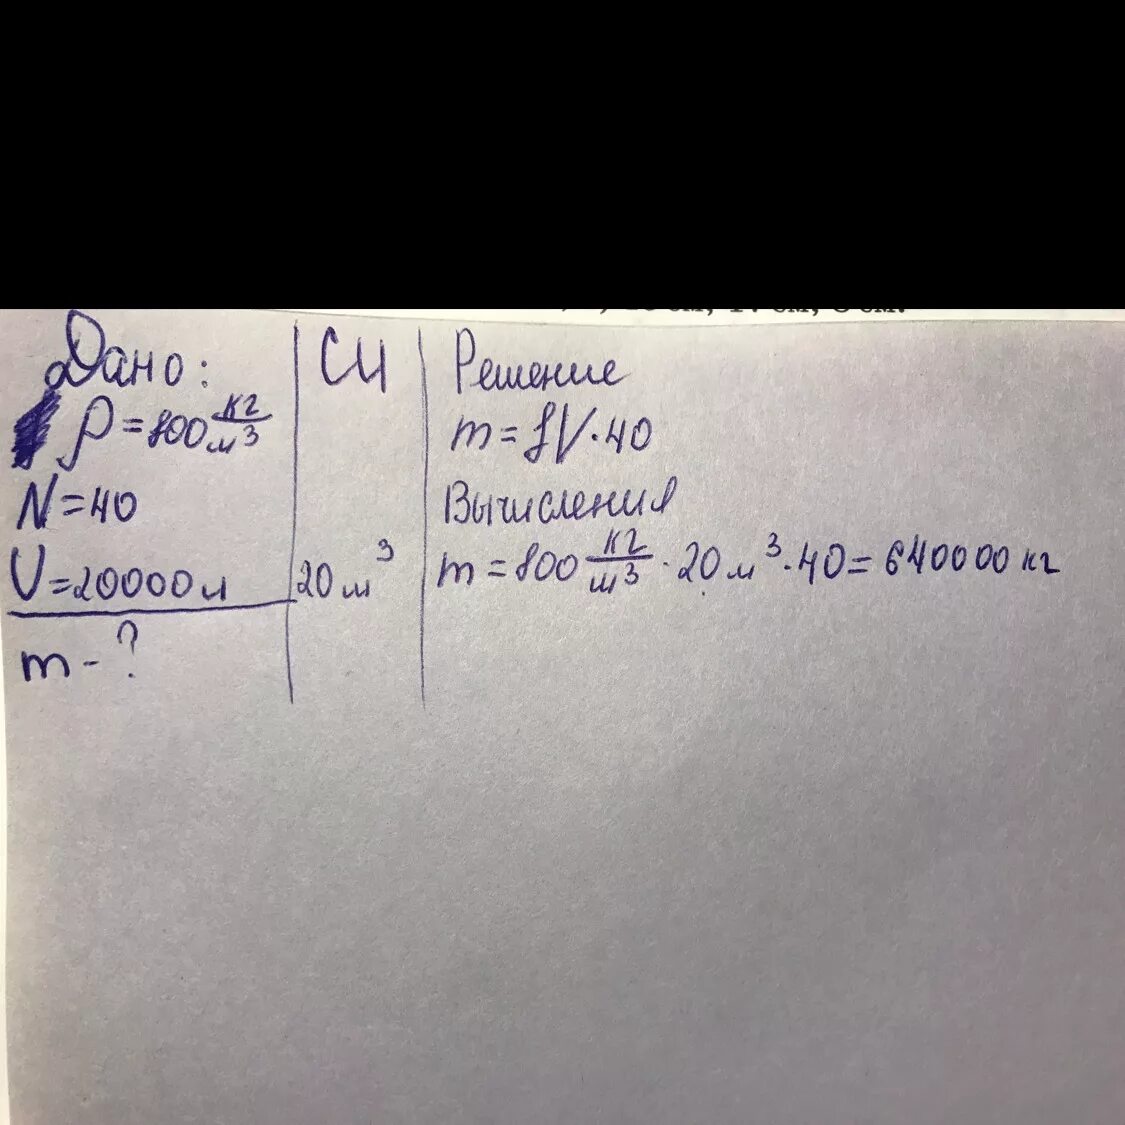 Дано:
ρ = 800 кг/м³
N = 40
V = 20000 л
m - ?
СИ
20 м³
Решение
m = ρV · 40
Вычисления
m = 800 кг/м³ · 20 м³ · 40 = 640000 кг